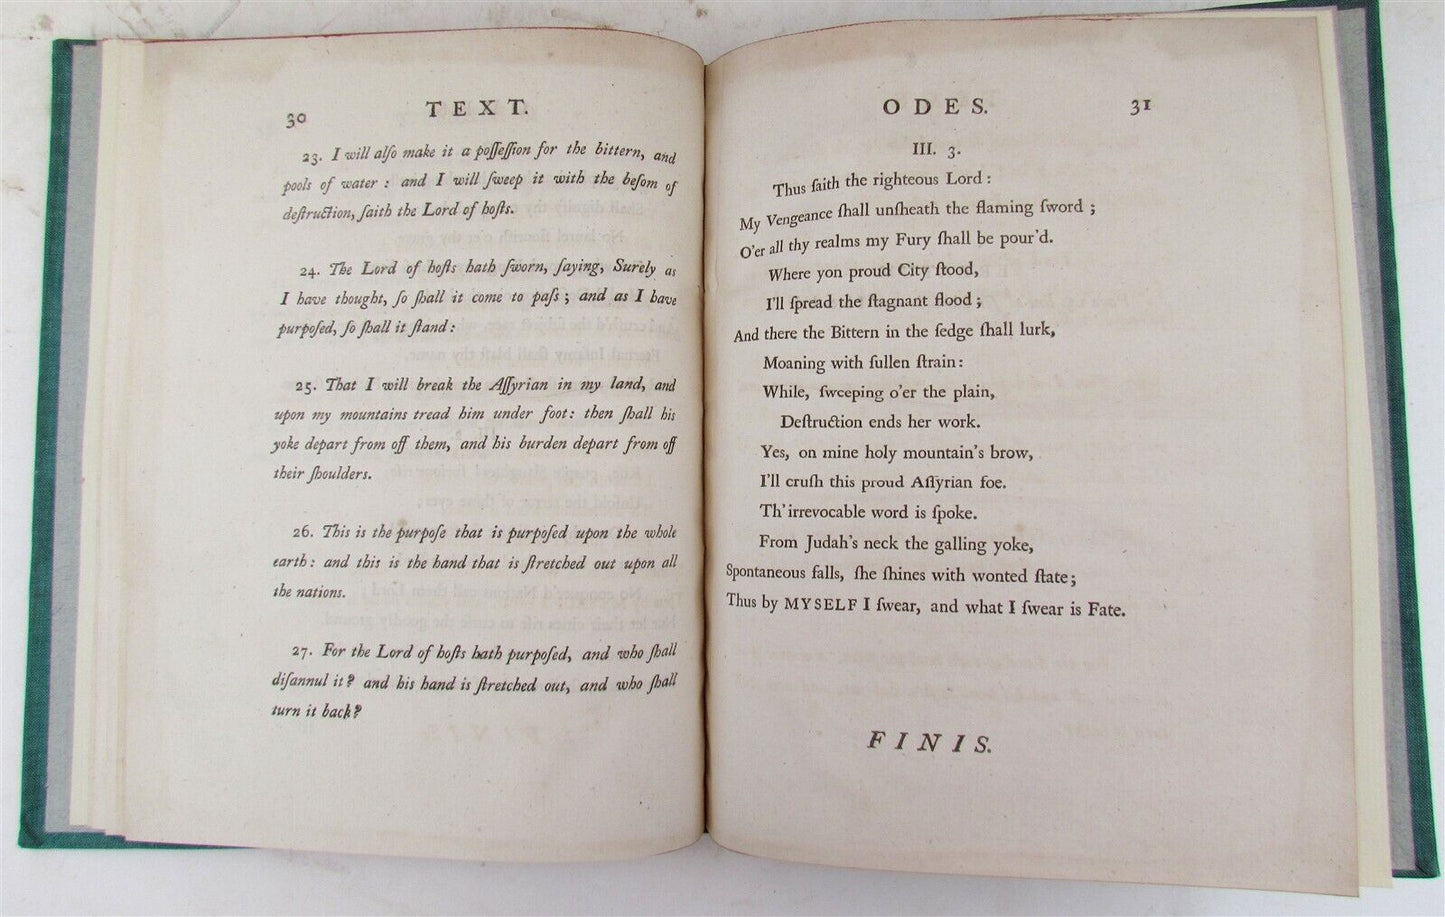 30 TEXT.
23. I will alſo make it a poſſeſſion for the bittern, and
pools of water : and I will ſweep it with the beſom of
deſtruction, ſaith the Lord of hoſts.
24. The Lord of hoſts hath ſworn, ſaying, Surely as
I have thought, ſo ſhall it come to paſs ; and as I have
purpoſed, ſo ſhall it ſtand :
25. That I will break the Aſſyrian in my land, and
upon my mountains tread him under foot : then ſhall his
yoke depart from off them, and his burden depart from off
their ſhoulders.
26. This is the purpoſe that is purpoſed upon the whole
earth : and this is the hand that is ſtretched out upon all
the nations.
27. For the Lord of hoſts hath purpoſed, and who ſhall
diſannul it? and his hand is ſtretched out, and who ſhall
turn it back?
ODES. 31
III. 3.
Thus ſaith the righteous Lord :
My Vengeance ſhall unſheath the flaming ſword ;
O'er all thy realms my Fury ſhall be pour'd.
Where yon proud City ſtood,
I'll ſpread the ſtagnant flood ;
And there the Bittern in the ſedge ſhall lurk,
Moaning with ſullen ſtrain :
While, ſweeping o'er the plain,
Deſtruction ends her work.
Yes, on mine holy mountain's brow,
I'll cruſh this proud Aſſyrian foe.
Th' irrevocable word is ſpoke.
From Judah's neck the galling yoke,
Spontaneous falls, ſhe ſhines with wonted ſtate ;
Thus by MYSELF I ſwear, and what I ſwear is Fate.
FINIS.